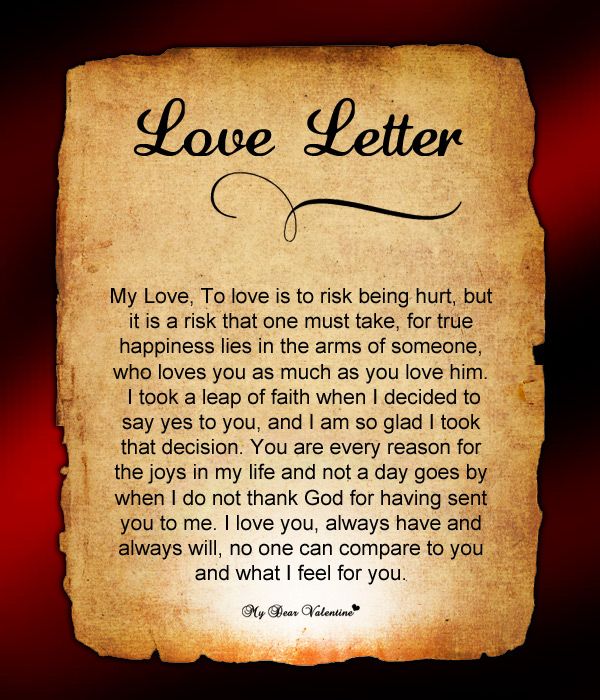 Love Letter
My Love, To love is to risk being hurt, but
it is a risk that one must take, for true
happiness lies in the arms of someone,
who loves you as much as you love him.
I took a leap of faith when I decided to
say yes to you, and I am so glad I took
that decision. You are every reason for
the joys in my life and not a day goes by
when I do not thank God for having sent
you to me. I love you, always have and
always will, no one can compare to you
and what I feel for you.
My Dear Valentine